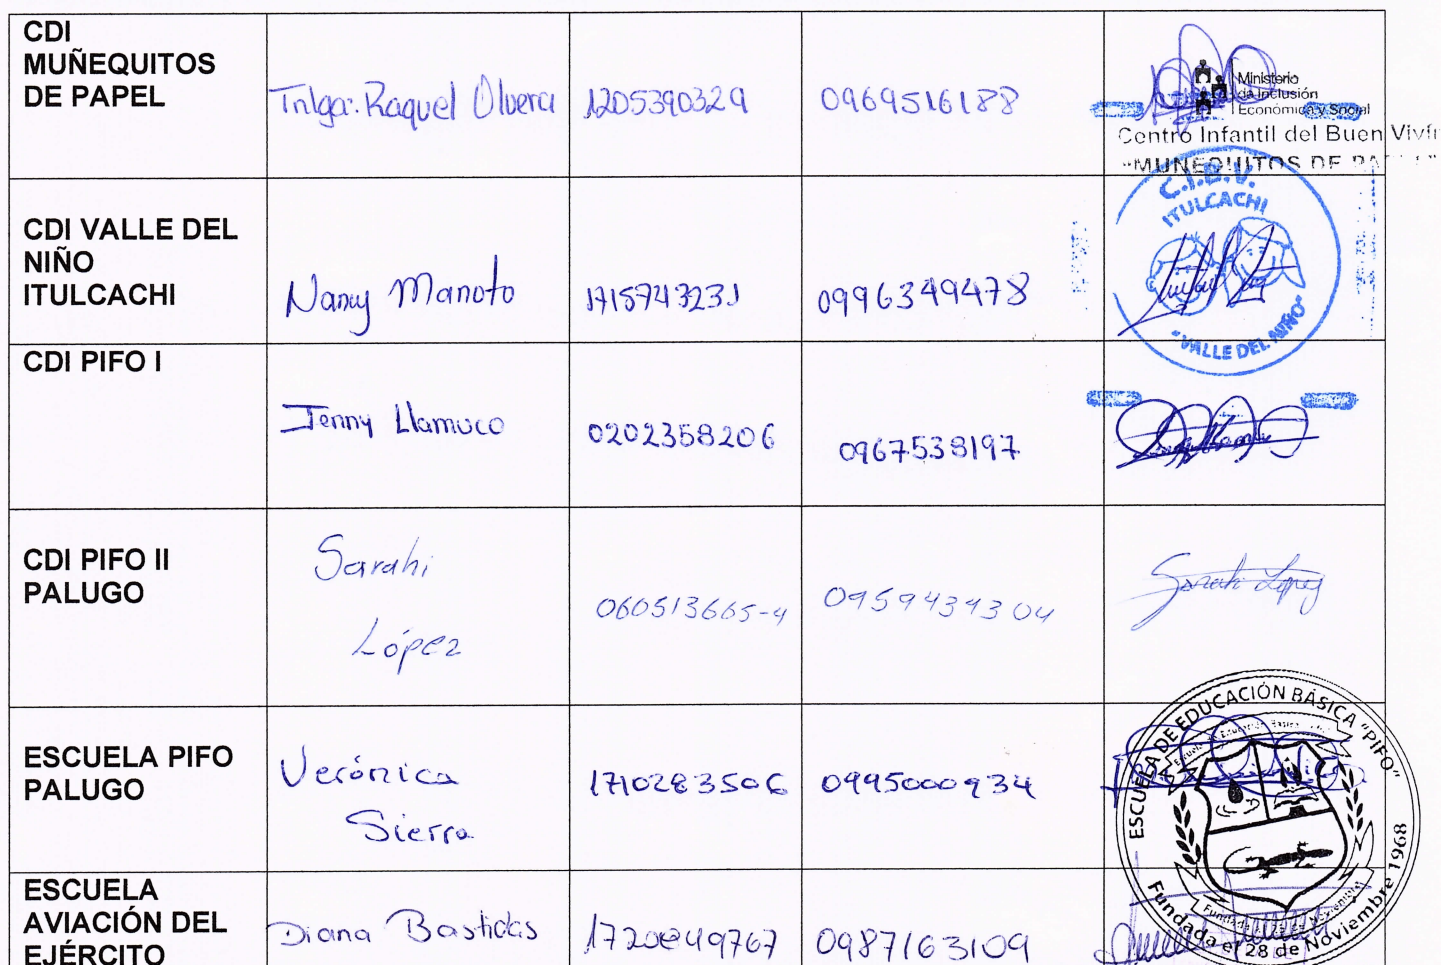 CDI
MUÑEQUITOS
DE PAPEL
Tnlga. Raquel Olvera
1205390329
0969516188
Ministerio
de Inclusión
Económica y Social
Centro Infantil del Buen Vivir
"MUÑEQUITOS DE PAPEL"
CDI VALLE DEL
NIÑO
ITULCACHI
Nancy Manoto
1715743231
0996349478
C.I.B.V.
ITULCACHI
"VALLE DEL NIÑO"
CDI PIFO I
Jenny Llamuco
0202358206
0967538197
CDI PIFO II
PALUGO
Sarahi
López
060513665-4
0959439304
Sarahi Lopez
ESCUELA PIFO
PALUGO
Verónica
Sierra
1710283506
0995000934
ESCUELA DE EDUCACIÓN BÁSICA "PIFO"
Fundada el 28 de Noviembre 1968
ESCUELA
AVIACIÓN DEL
EJÉRCITO
Diana Bastidas
1720849767
0987163109